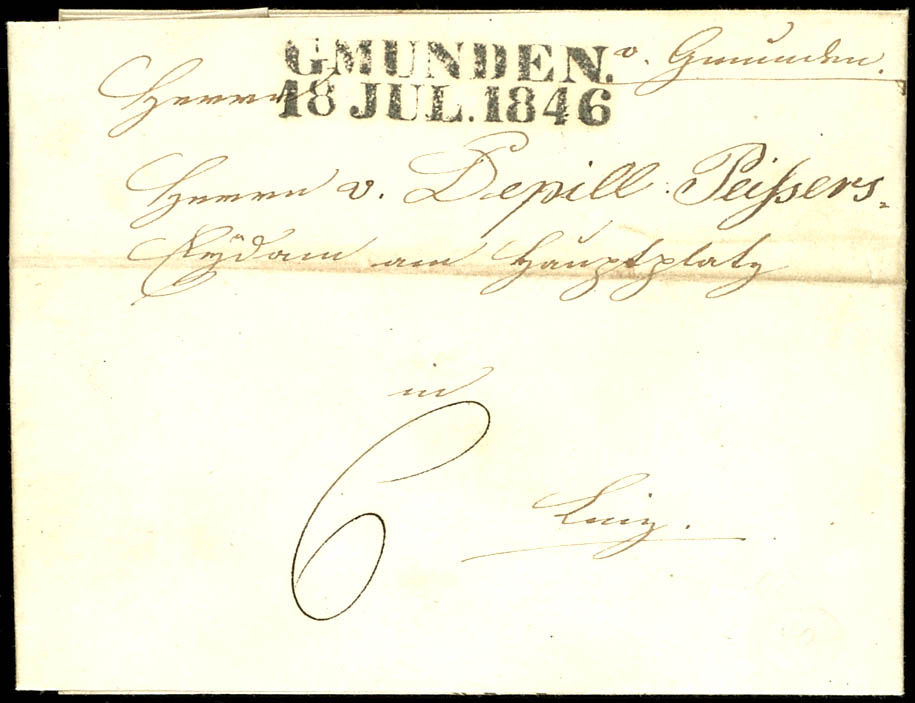 GMUNDEN.
18 JUL. 1846
v. Gmunden.
Herrn
Herrn v. Depill. Peißers-
Eÿdam am Hauptplatz
in
6
Linz.